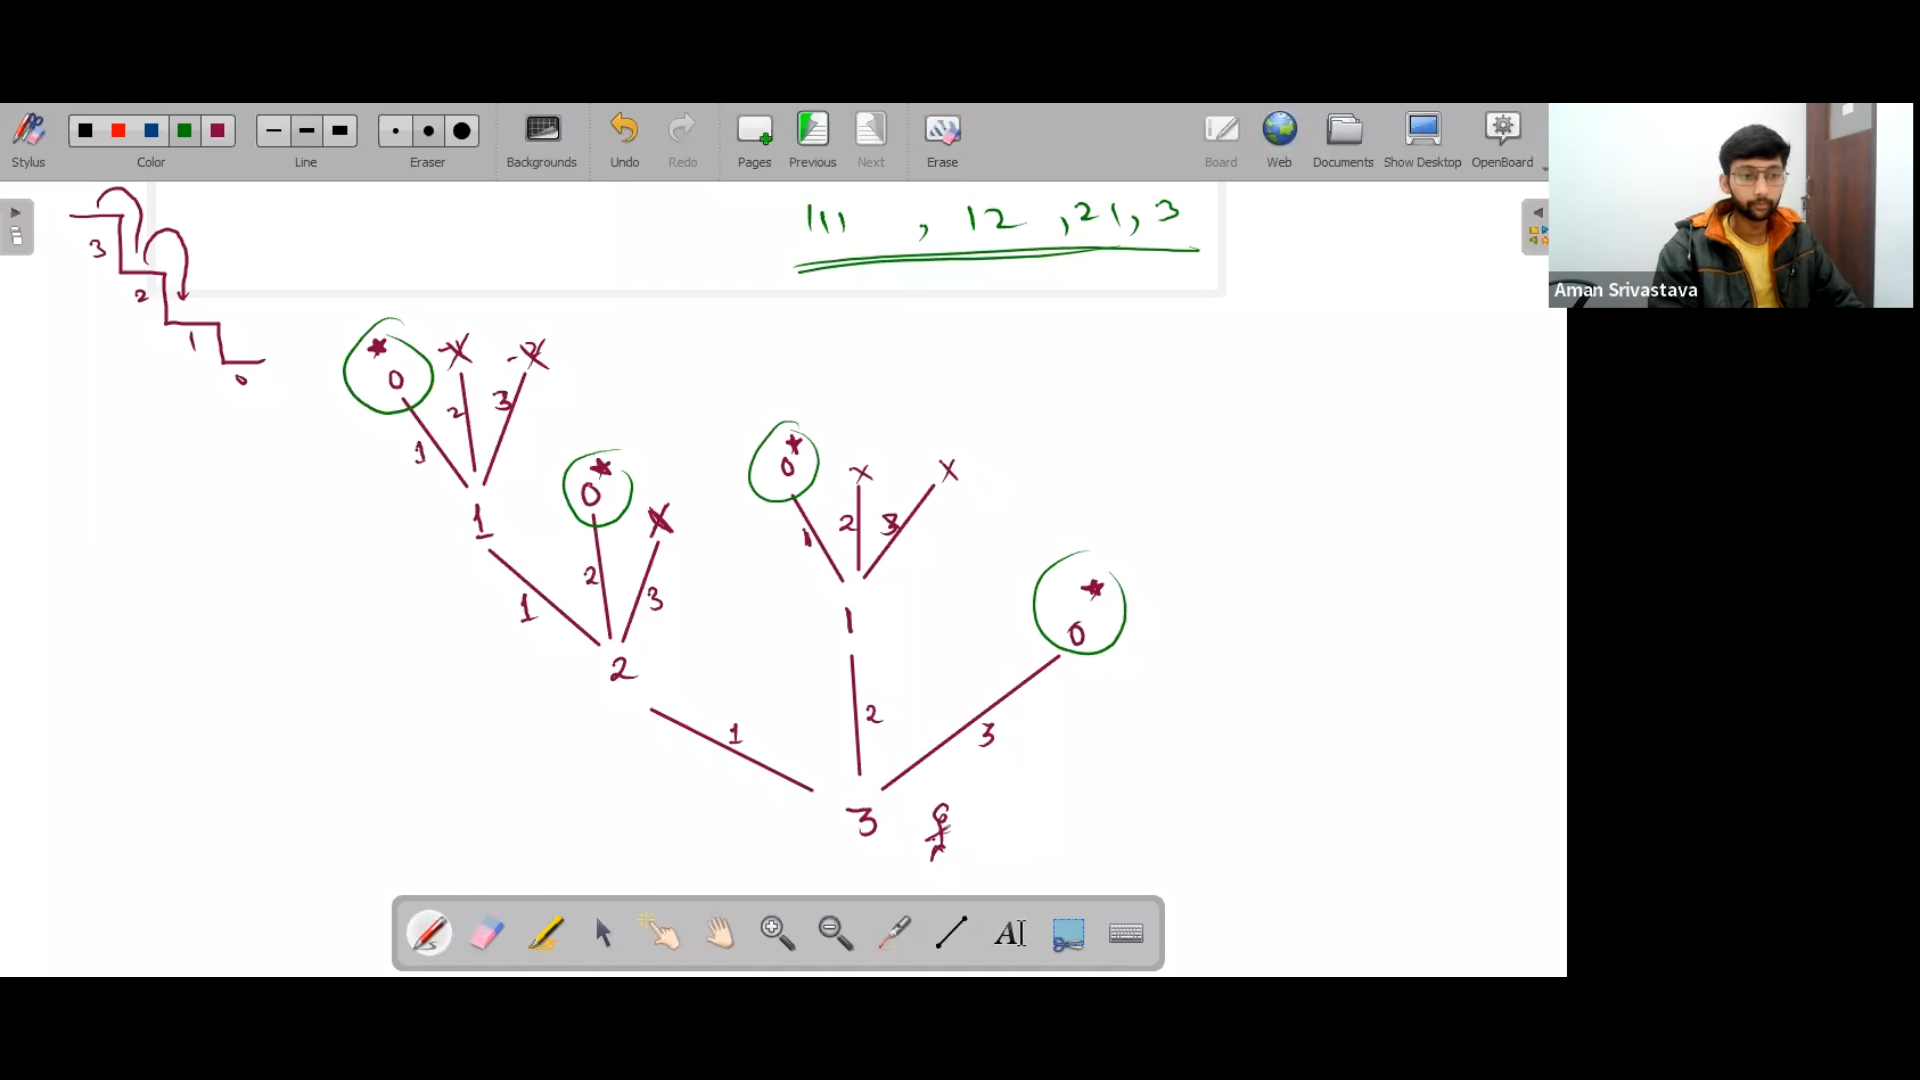 Stylus
Color
Line
Eraser
Backgrounds
Undo
Redo
Pages
Previous
Next
Erase
Board
Web
Documents
Show Desktop
OpenBoard
Aman Srivastava
111 , 12 , 21, 3
3
2
1
0
0 x x
1 2 3
1
0 x
1 2 3
2
0 x x
1 2 3
1
0
1 2 3
3
A